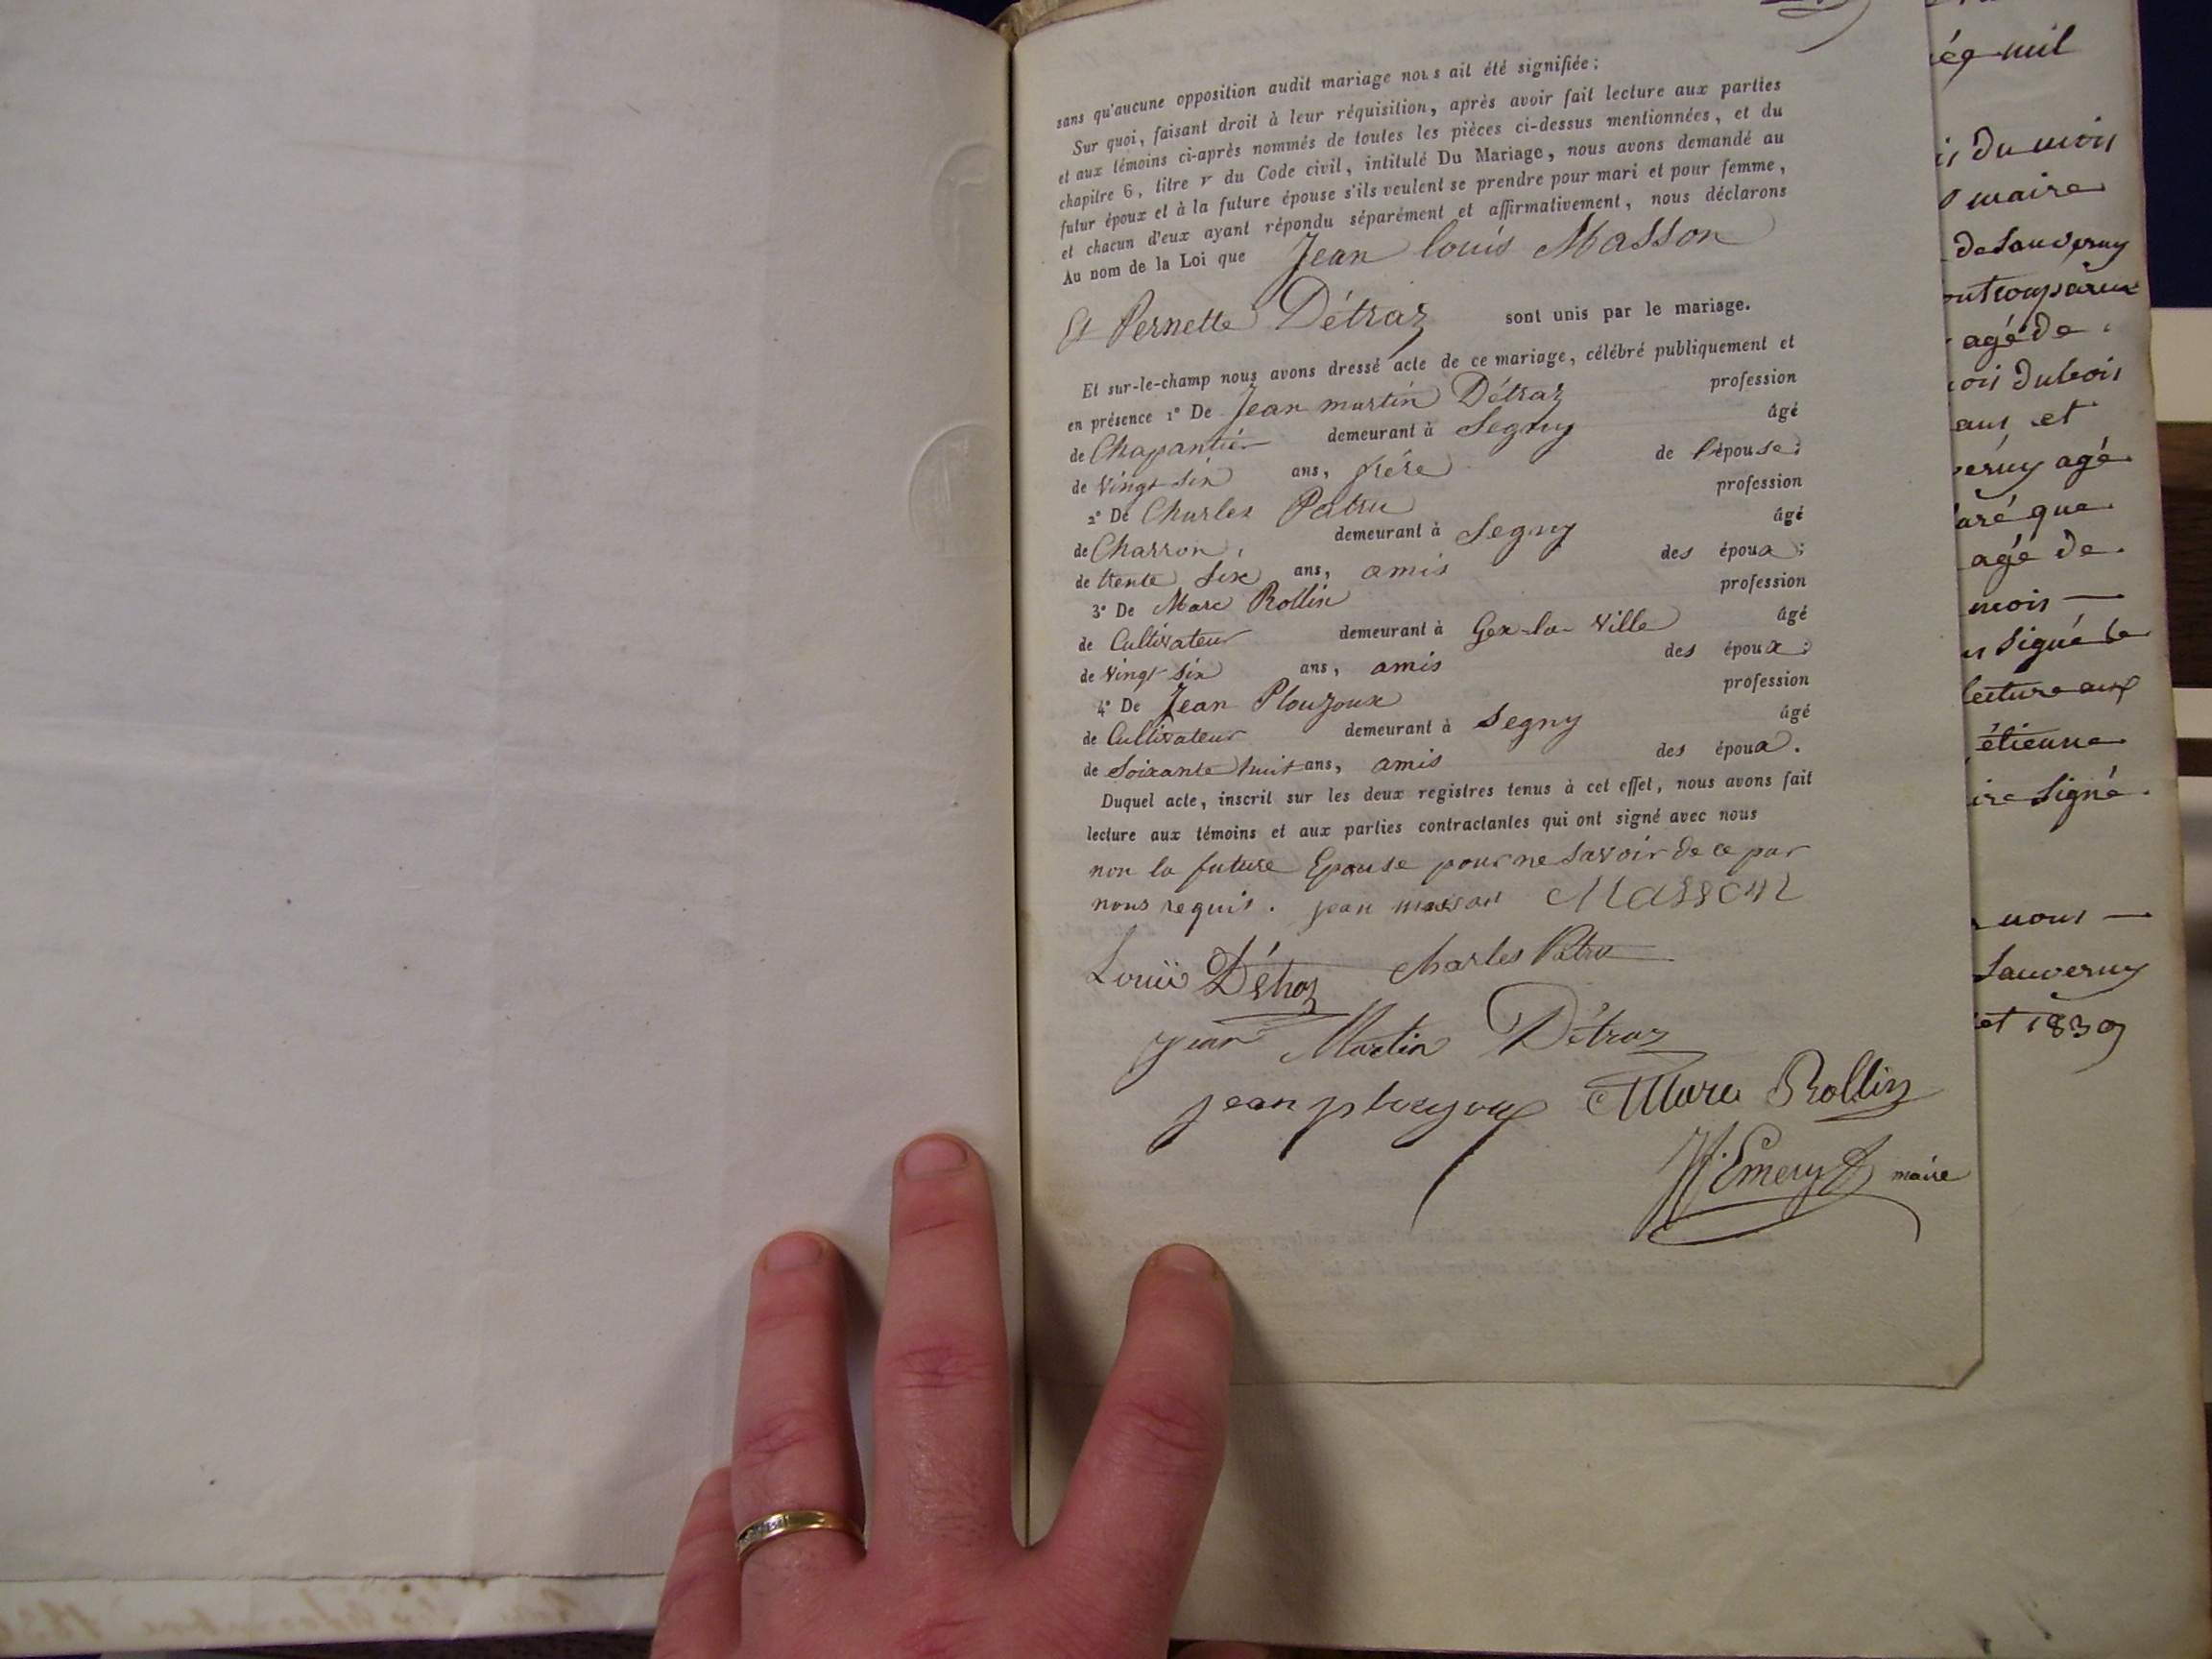 sans qu'aucune opposition audit mariage nous ait été signifiée ;
Sur quoi, faisant droit à leur réquisition, après avoir fait lecture aux parties
et aux témoins ci-après nommés de toutes les pièces ci-dessus mentionnées, et du
chapitre 6, titre v du Code civil, intitulé Du Mariage, nous avons demandé au
futur époux et à la future épouse s'ils veulent se prendre pour mari et pour femme,
et chacun d'eux ayant répondu séparément et affirmativement, nous déclarons
Au nom de la Loi que Jean louis Masson
Et Pernette Détraz sont unis par le mariage.
Et sur-le-champ nous avons dressé acte de ce mariage, célébré publiquement et
en présence 1° De Jean martin Détraz profession
de Chapantier demeurant à Segny âgé
de vingt six ans, frére de l'épouse ;
2° De Charles Patru profession
de Charron, demeurant à Segny âgé
de trente six ans, amis des époux ;
3° De Marc Rollin profession
de Cultivateur demeurant à Gex-la-Ville âgé
de vingt six ans, amis des époux ;
4° De Jean Ploujoux profession
de Cultivateur demeurant à Segny âgé
de Soixante huit ans, amis des époux.
Duquel acte, inscrit sur les deux registres tenus à cet effet, nous avons fait
lecture aux témoins et aux parties contractantes qui ont signé avec nous
non la future Epouse pour ne savoir de ce par
nous requis. jean masson Masson
Louis Détraz Charles Patru
jean Martin Détraz
jean Marc Rollin
Emery maire
mil
du mois
maire
de Sauverny
agé de
dubois
ans et
agé
que
agé de
mois —
signé le
lecture aux
étienne
signé.
nous —
Sauverny
et 1839